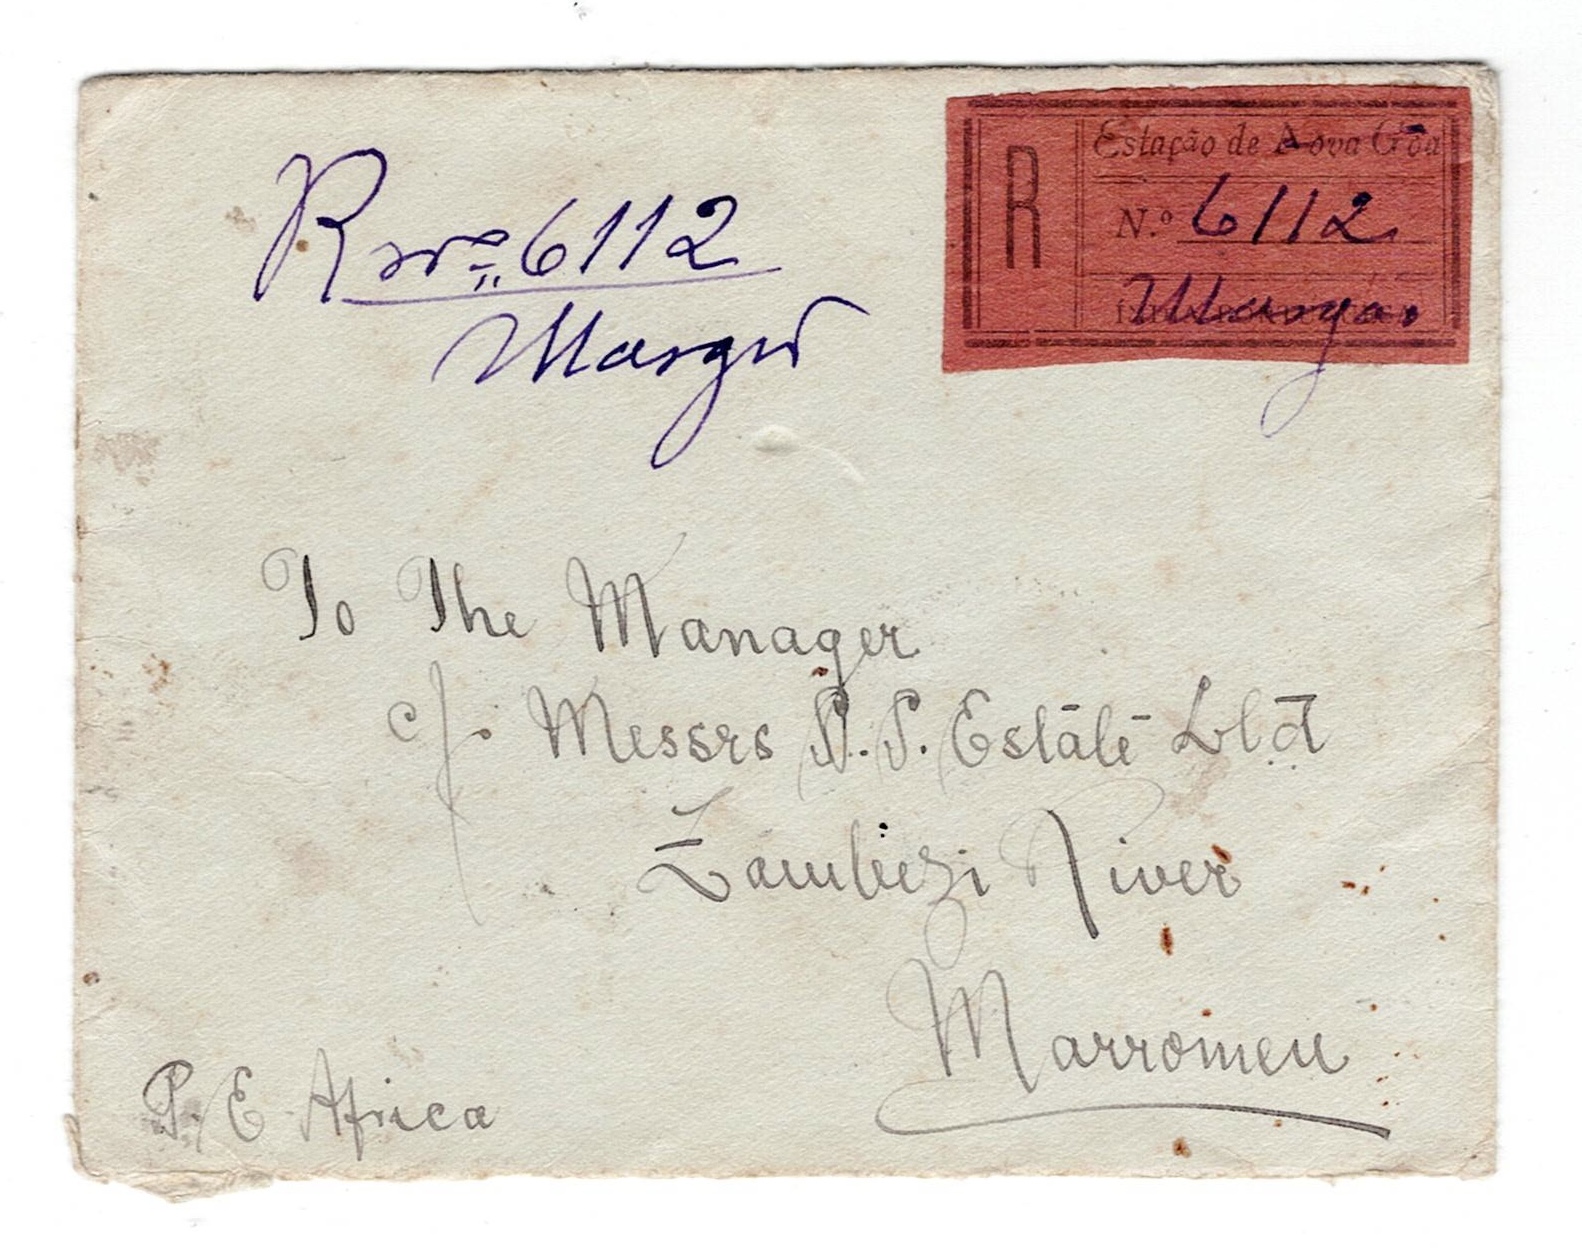 R nº 6112
Margão
R
Estação de Nova Gôa
N.º 6112
Margão
To The Manager
c/. Messrs S. S. Estate Ltd
Zambezi River
Marromeu
P. E Africa